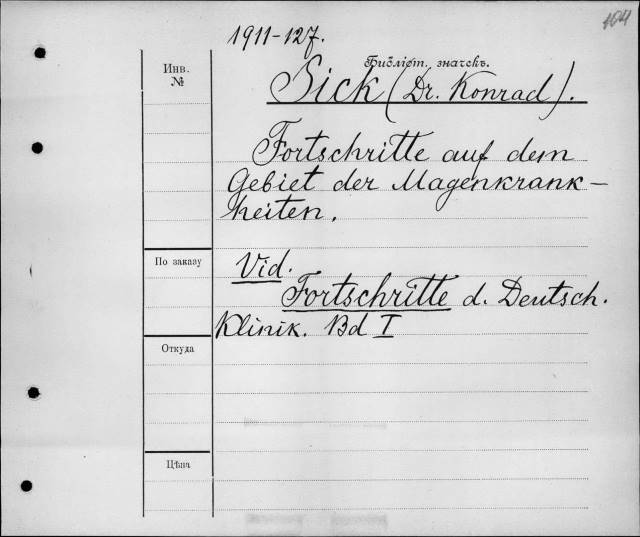 464
1911-127.
Библіот. значекъ.
Инв.
№
Sick (Dr. Konrad).
Fortschritte auf dem
Gebiet der Magenkrank-
heiten.
По заказу
Vid.
Fortschritte d. Deutsch.
Klinik. Bd I
Откуда
Цѣна